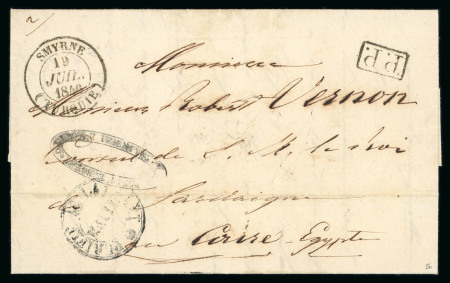 SMYRNE
19
JUIL.
1840
(TURQUIE)
P.P.
Monsieur
Monsieur Robert Vernon
Consul de S. M. le Roi
de Sardaigne
au Caire - Egypte